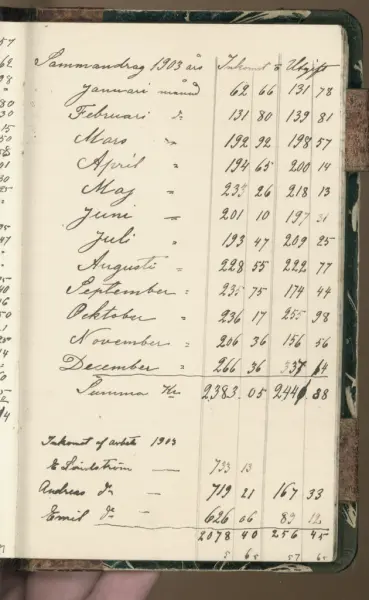 Sammandrag 1903 års Inkomst & Utgift
Januari månad 62 66 131 78
Februari d:o 131 80 139 81
Mars " 192 92 198 57
April " 194 65 200 14
Maj " 233 26 218 13
Juni " 201 10 197 31
Juli " 193 47 209 25
Augusti " 228 55 222 77
September " 235 75 174 44
Ocktober " 236 17 255 98
November " 206 36 156 56
December " 266 36 337 14
Summa Kr 2383.05 2441.88
Inkomst af arbete 1903
E Söderström — 733 13
Andreas d:o — 719 21 167 33
Emil d:o — 626 06 89 12
2078 40 256 45